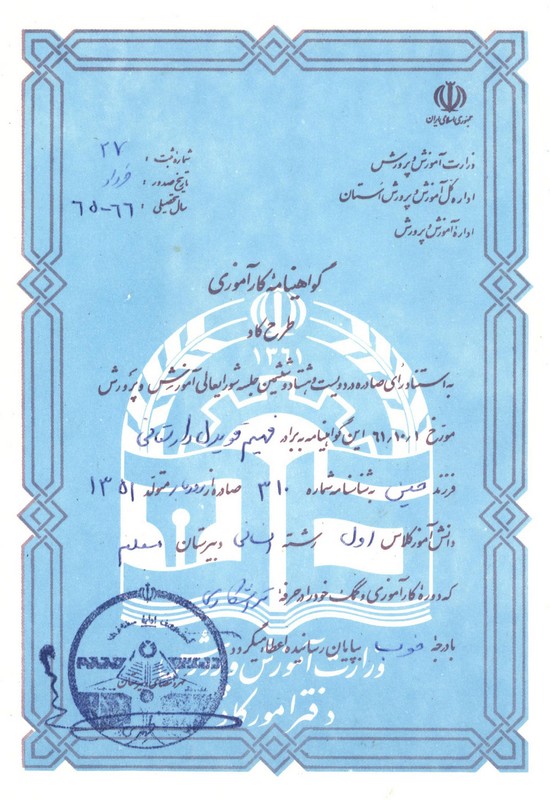 جمهوری اسلامی ایران
وزارت آموزش و پرورش
اداره کل آموزش و پرورش استان
اداره آموزش و پرورش
شماره ثبت : ۲۷
تاریخ صدور : خرداد
سال تحصیلی : ۶۶-۶۵
گواهینامه کارآموزی
طرح کاد
۱۳۶۱
به استناد رأی صادره در دویست و هشتاد و ششمین جلسه شورایعالی آموزش و پرورش
مورخ ۶۱/۱۰/۲ این گواهینامه به برادر فهیم
فرزند حسین به شناسنامه شماره ۳۱۰ صادره از رودبار متولد ۱۳۵۱
دانش آموز کلاس اول رشته انسانی دبیرستان معلم
که دوره کارآموزی و کمک خود را در حرفه
با درجه خوب بپایان رسانیده اعطا میگردد
وزارت آموزش و پرورش
دفتر امور کاد